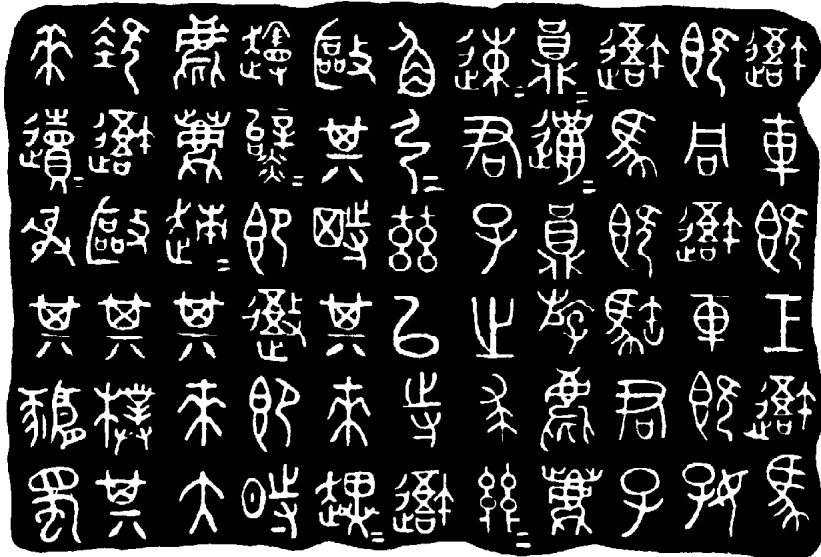 吾車既工吾馬
既同吾車既好
吾馬既𩣡君子
員=邋=員斿麀鹿
速=君子之求騂=
角弓=茲以寺吾
敺其特其來趩=
即即時
麀鹿趚=其來大
次吾敺其樸其
來遺=射其豜蜀